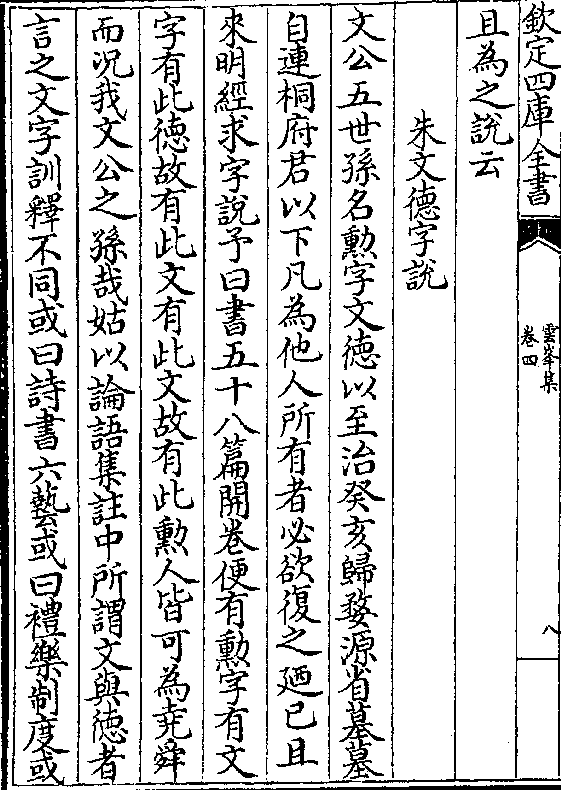 欽定四庫全書
雲峯集
卷四
八
且為之說云
朱文德字說
文公五世孫名勲字文德以至治癸亥歸婺源省墓墓
自連桐府君以下凡為他人所有者必欲復之廼已且
來明經求字說予曰書五十八篇開卷便有勲字有文
字有此德故有此文有此文故有此勲人皆可為堯舜
而況我文公之孫哉姑以論語集註中所謂文與德者
言之文字訓釋不同或曰詩書六藝或曰禮樂制度或